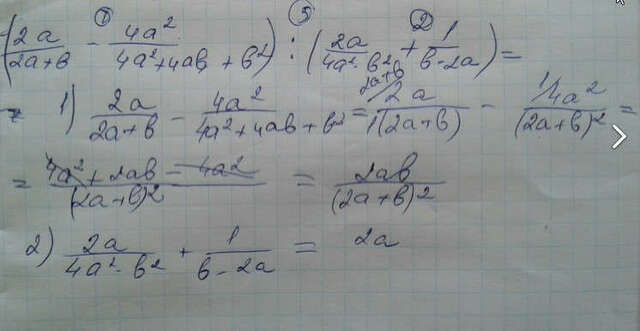 ① ③ ②
(2a/(2a+b) - 4a²/(4a²+4ab+b²)) : (2a/(4a²-b²) + 1/(b-2a)) =
= 1) 2a/(2a+b) - 4a²/(4a²+4ab+b²) = ^(2a+b)/2a/(1(2a+b)) - ^1/4a²/(2a+b)² =
= (4a²+2ab-4a²)/(2a+b)² = 2ab/(2a+b)²
2) 2a/(4a²-b²) + 1/(b-2a) = 2a